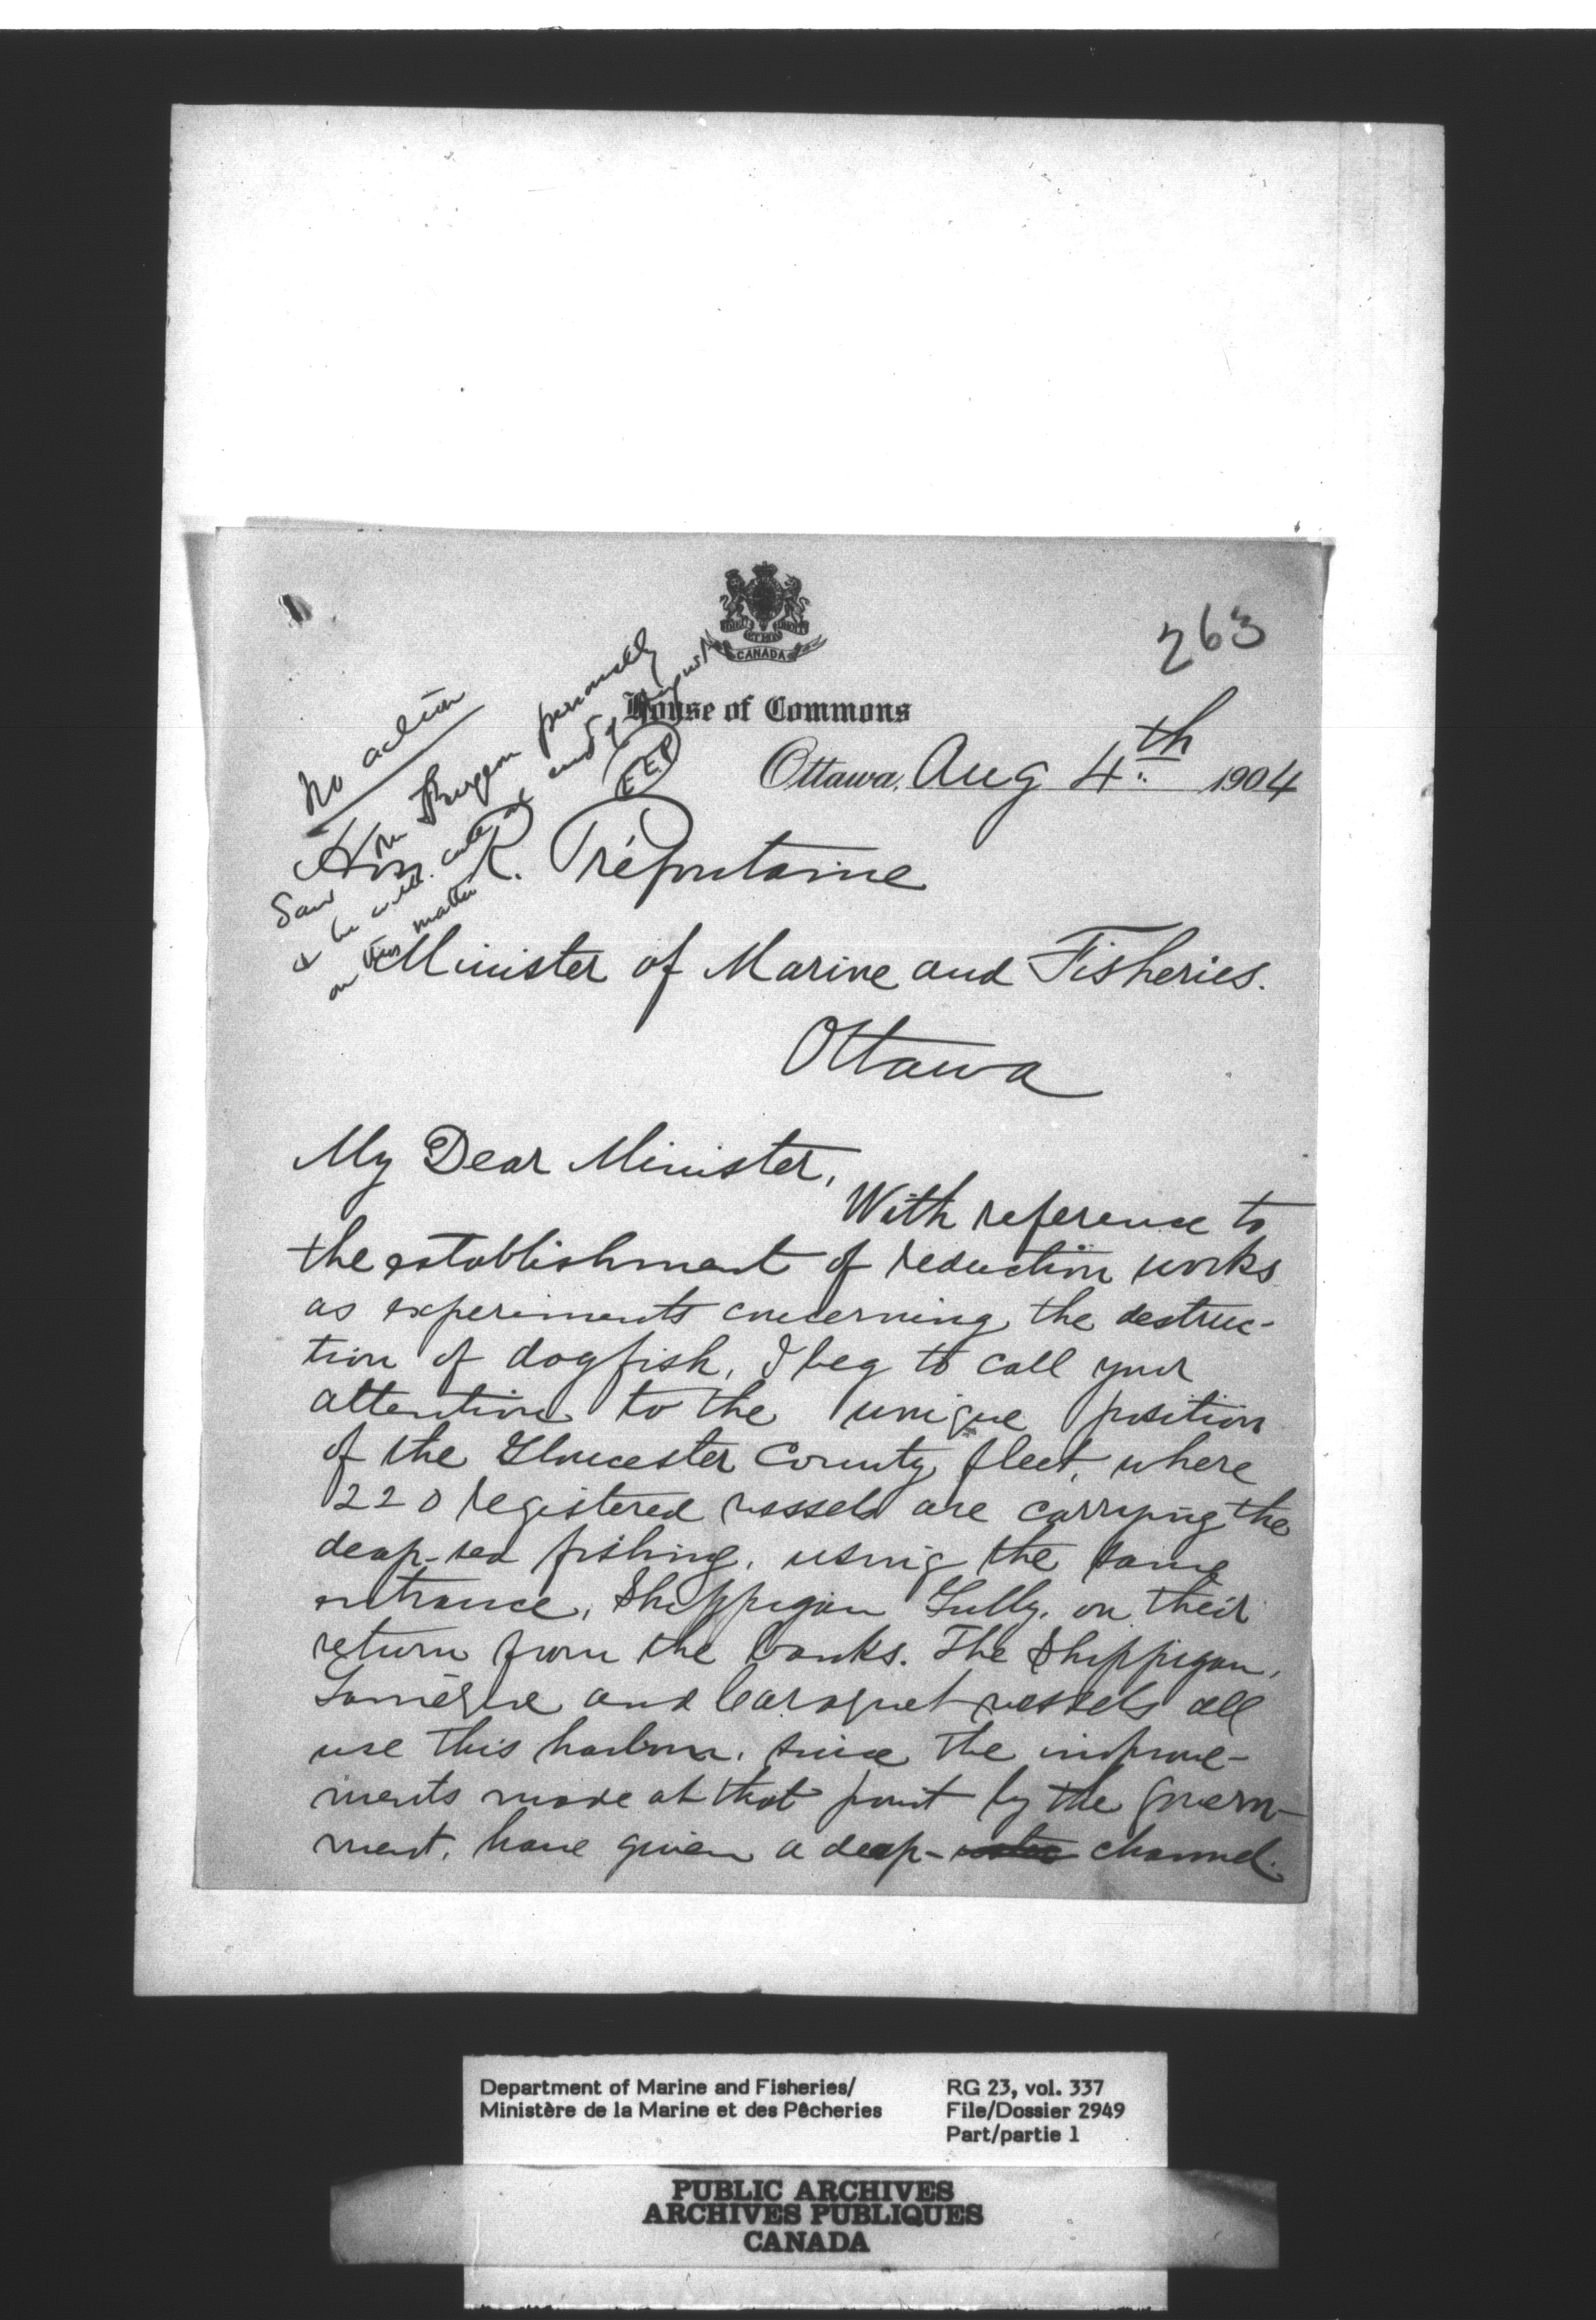 CANADA
263
House of Commons
Ottawa, Aug 4th 1904
No action
Saw Mr Turgeon personally
& he will call at end of August
on this matter
E.E.P.
Hon. R. Préfontaine
Minister of Marine and Fisheries.
Ottawa
My Dear Minister,
With reference to
the establishment of reduction works
as experiments concerning the destruc-
tion of dogfish, I beg to call your
attention to the unique position
of the Gloucester County fleet, where
220 registered vessels are carrying the
deep-sea fishing, using the same
entrance, Shippigan Gully, on their
return from the banks. The Shippigan,
Lamèque and Caraquet vessels all
use this harbour, since the improve-
ments made at that point by the govern-
ment, have given a deep-water channel.
Department of Marine and Fisheries/
Ministère de la Marine et des Pêcheries
RG 23, vol. 337
File/Dossier 2949
Part/partie 1
PUBLIC ARCHIVES
ARCHIVES PUBLIQUES
CANADA